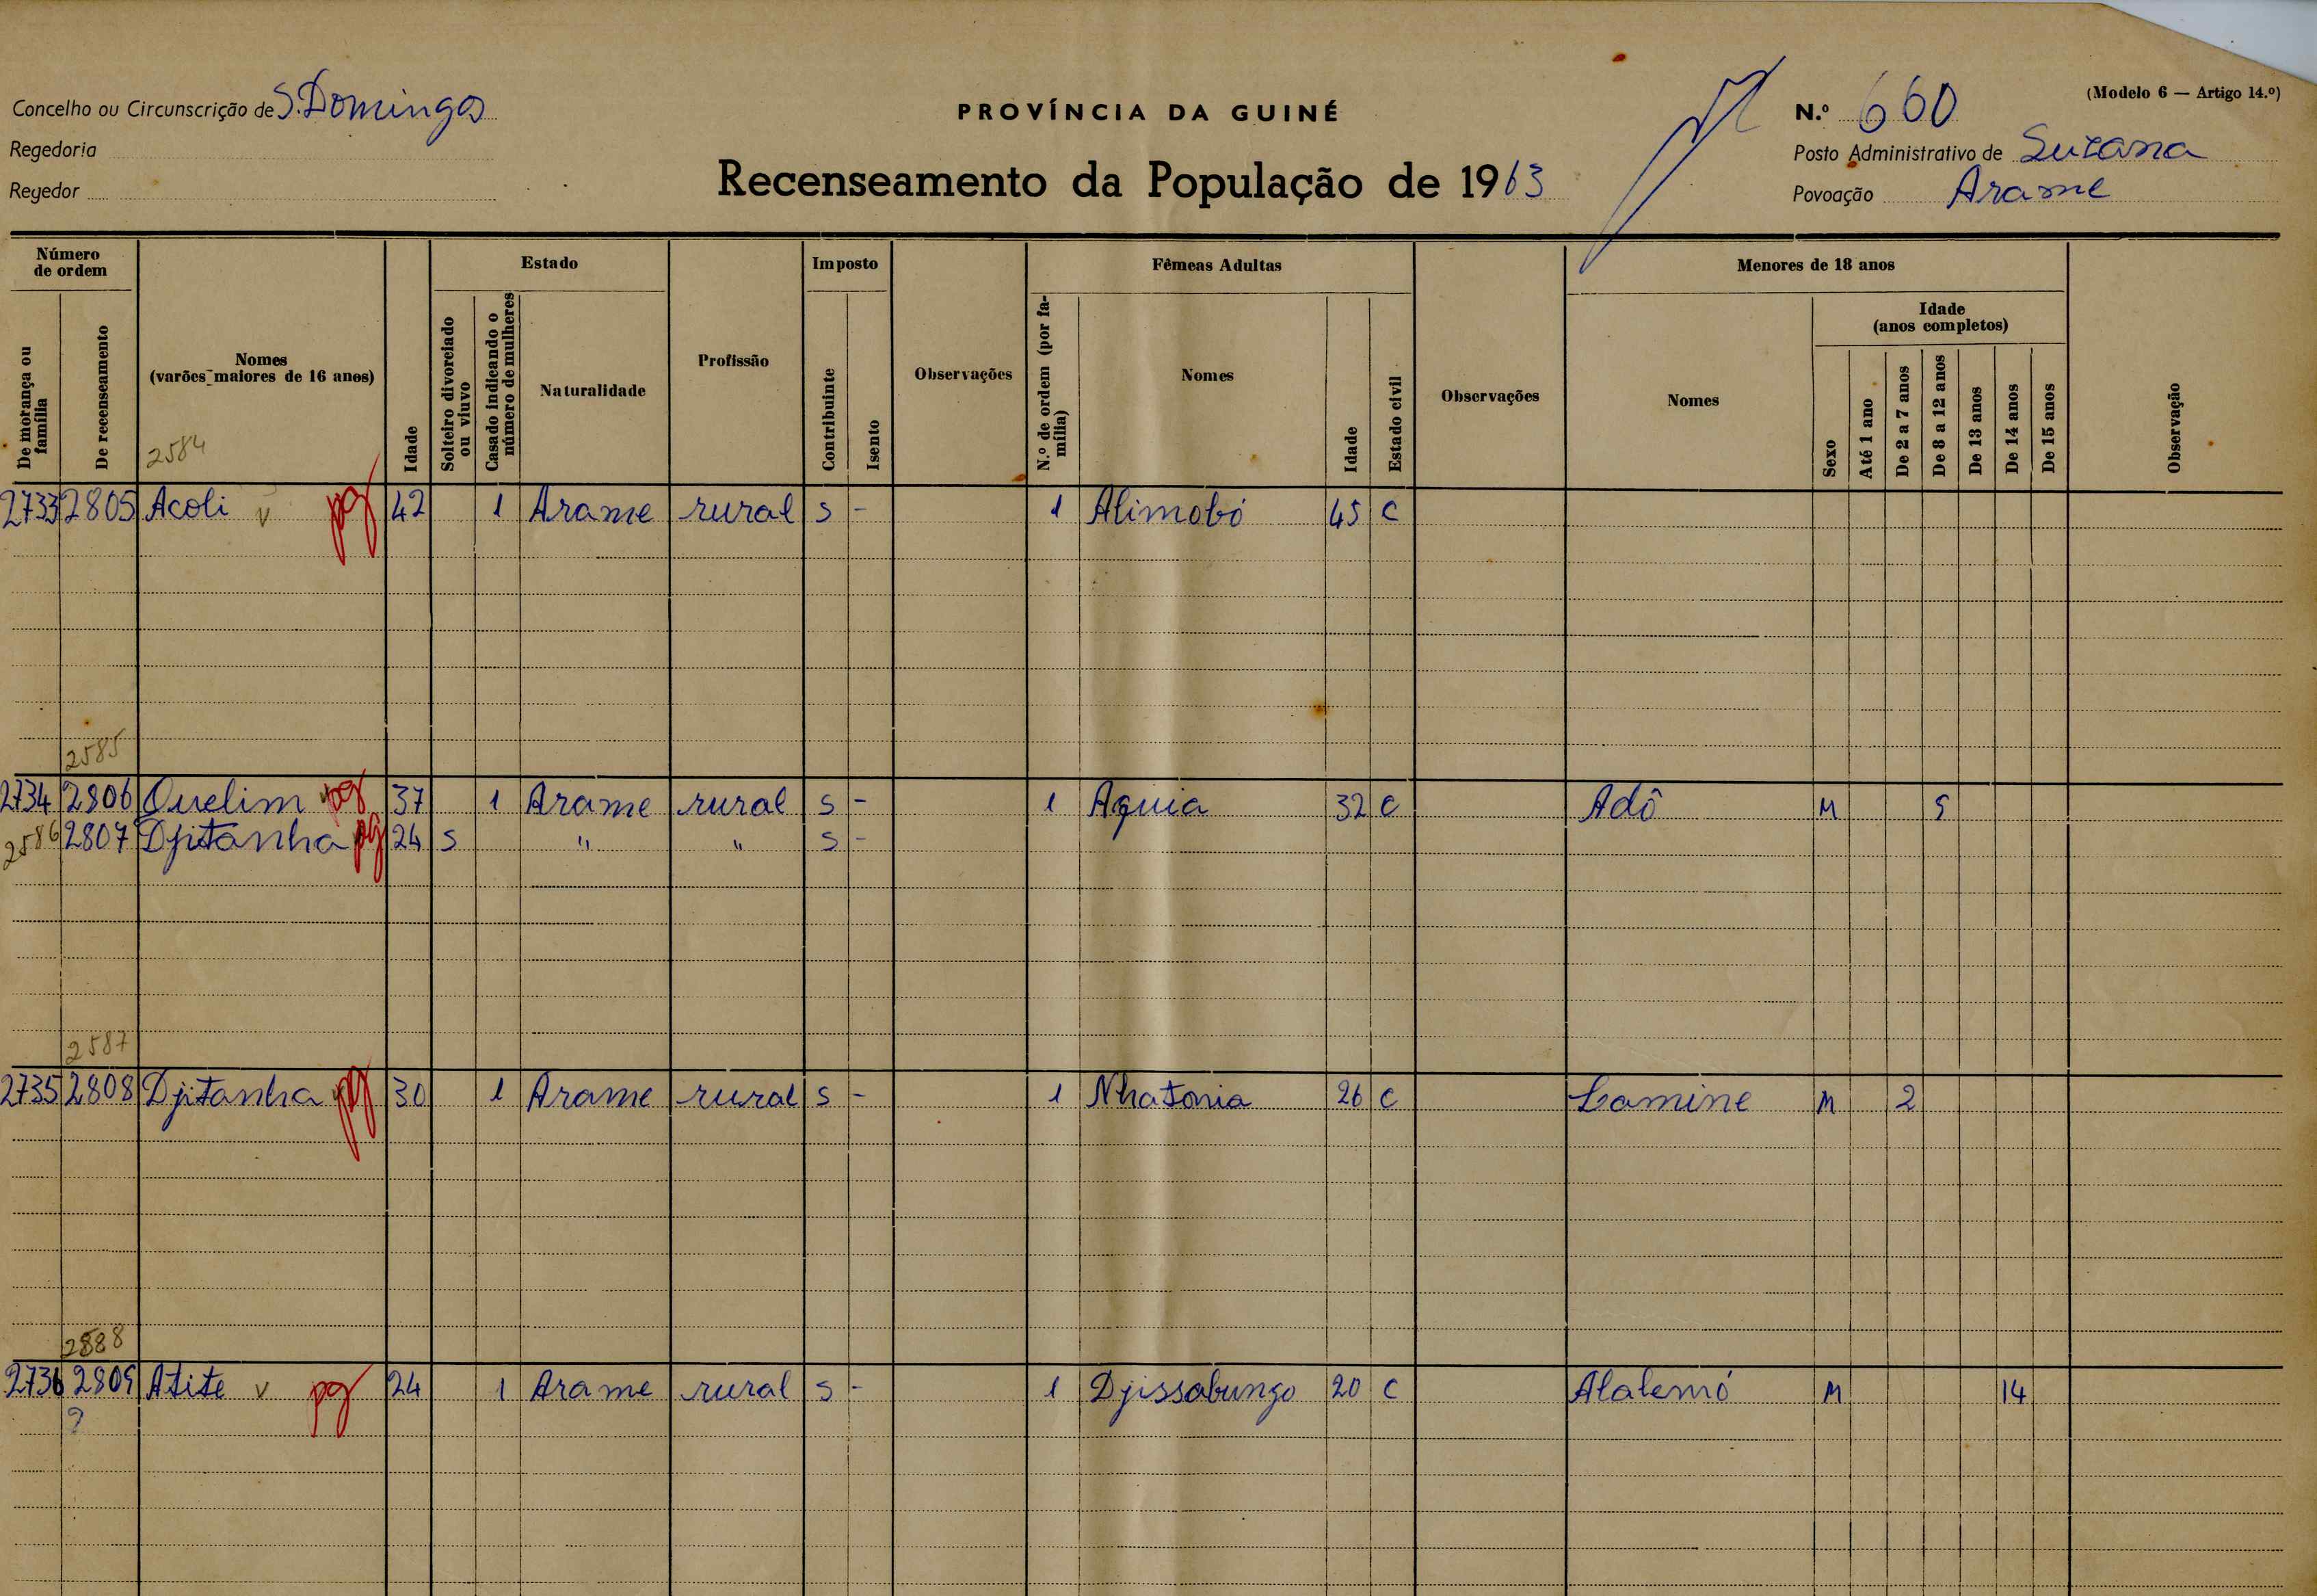 (Modelo 6 — Artigo 14.º)
Concelho ou Circunscrição de S. Domingos
PROVÍNCIA DA GUINÉ
N.º 660
Regedoria
Posto Administrativo de Suzana
Regedor
Recenseamento da População de 1963
Povoação Arame
Número de ordem
Estado
Imposto
Fêmeas Adultas
Menores de 18 anos
De morança ou família
De recenseamento
Nomes
(varões maiores de 16 anos)
2584
Idade
Solteiro divorciado ou viuvo
Casado indicando o número de mulheres
Naturalidade
Profissão
Contribuinte
Isento
Observações
N.º de ordem (por família)
Nomes
Idade
Estado civil
Observações
Nomes
Sexo
Idade
(anos completos)
Até 1 ano
De 2 a 7 anos
De 8 a 12 anos
De 13 anos
De 14 anos
De 15 anos
Observação
2733 2805 Acoli v pg 42 1 Arame rural s - 1 Alimobó 45 C
2585
2734 2806 Quelim v pg 37 1 Arame rural s - 1 Aquia 32 C Adô M 9
2586 2807 Djitanha pg 24 s " " s -
2587
2735 2808 Djitanha v pg 30 1 Arame rural s - 1 Nhatonia 26 C Lamine M 2
2588
2736 2809 Atite v pg 24 1 Arame rural s - 1 Djissabungo 20 C Alalemó M 14